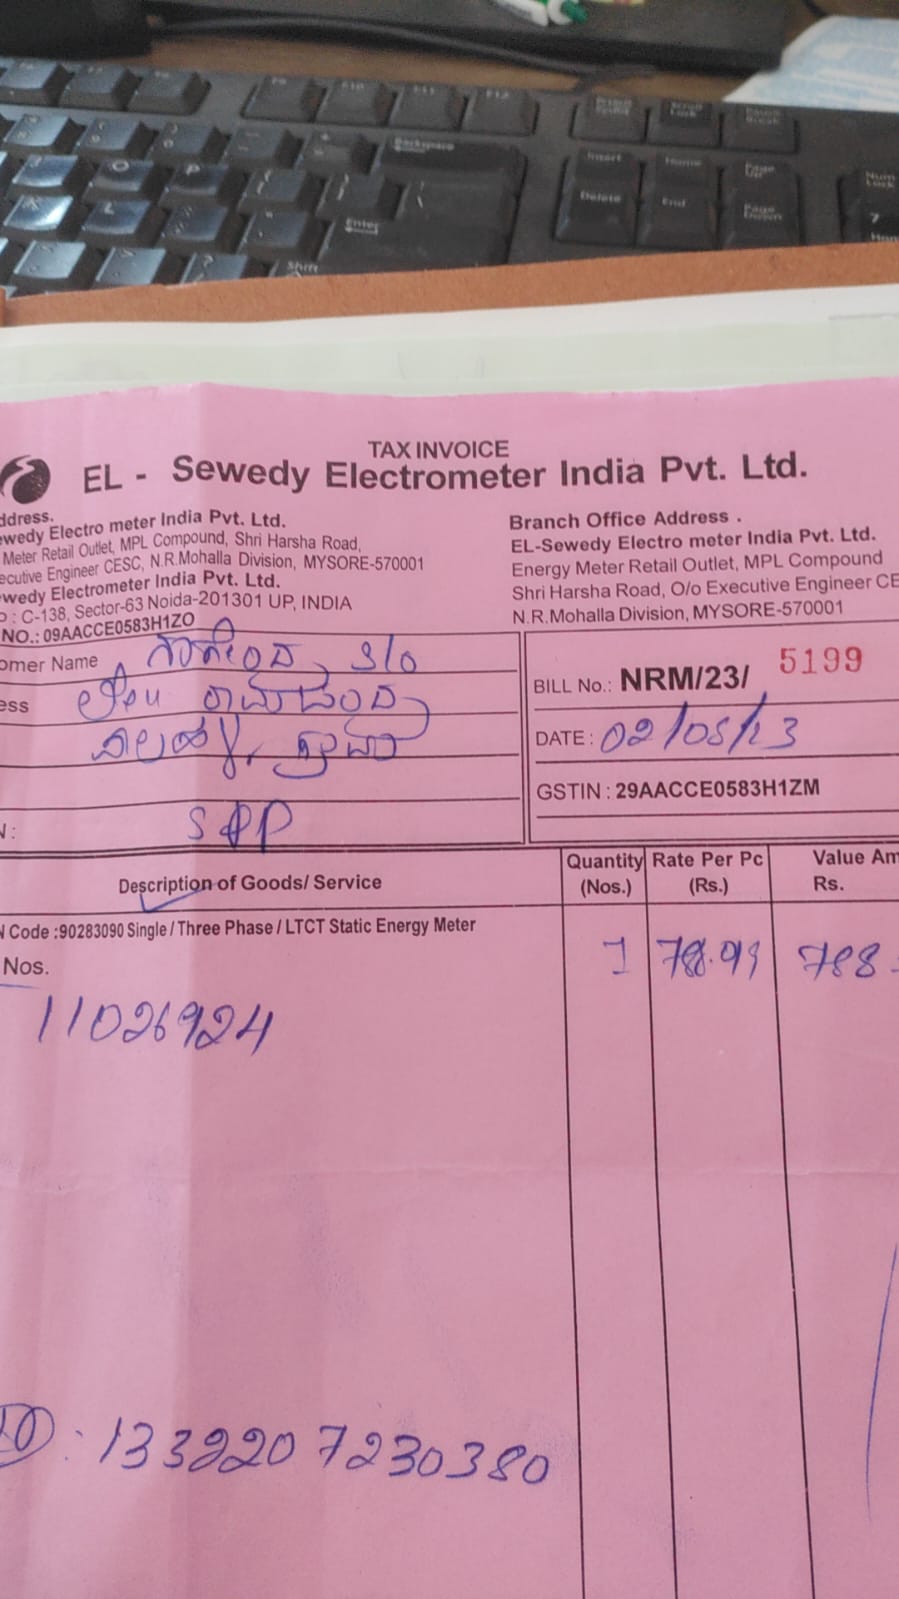 TAX INVOICE
EL - Sewedy Electrometer India Pvt. Ltd.
ddress.
ewedy Electro meter India Pvt. Ltd.
Meter Retail Outlet, MPL Compound, Shri Harsha Road,
ecutive Engineer CESC, N.R.Mohalla Division, MYSORE-570001
wedy Electrometer India Pvt. Ltd.
: C-138, Sector-63 Noida-201301 UP, INDIA
NO.: 09AACCE0583H1ZO
Branch Office Address .
EL-Sewedy Electro meter India Pvt. Ltd.
Energy Meter Retail Outlet, MPL Compound
Shri Harsha Road, O/o Executive Engineer CE
N.R.Mohalla Division, MYSORE-570001
omer Name S/o
ess
N :
BILL No.: NRM/23/ 5199
DATE : 02/05/23
GSTIN : 29AACCE0583H1ZM
Description of Goods/ Service
Quantity (Nos.)
Rate Per Pc (Rs.)
Value Am Rs.
N Code :90283090 Single / Three Phase / LTCT Static Energy Meter
Nos.
1
788
11026924
: 133220 7230380
Backspace
Enter
Shift
Insert
Home
Page Up
Delete
End
Page Down
Num Lock
7